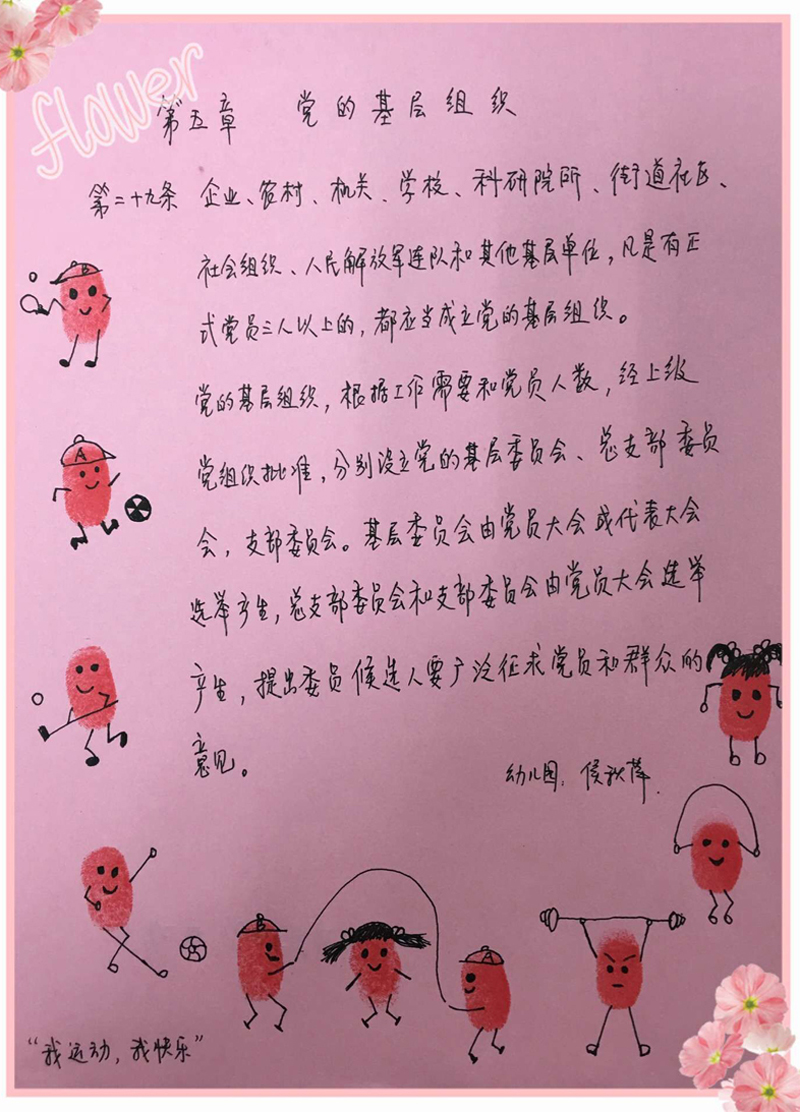 flower
第五章 党的基层组织
第二十九条 企业、农村、机关、学校、科研院所、街道社区、
社会组织、人民解放军连队和其他基层单位，凡是有正
式党员三人以上的，都应当成立党的基层组织。
党的基层组织，根据工作需要和党员人数，经上级
党组织批准，分别设立党的基层委员会、总支部委员
会，支部委员会。基层委员会由党员大会或代表大会
选举产生，总支部委员会和支部委员会由党员大会选举
产生，提出委员候选人要广泛征求党员和群众的
意见。
幼儿园：侯秋萍
B
A
B
A
“我运动，我快乐”